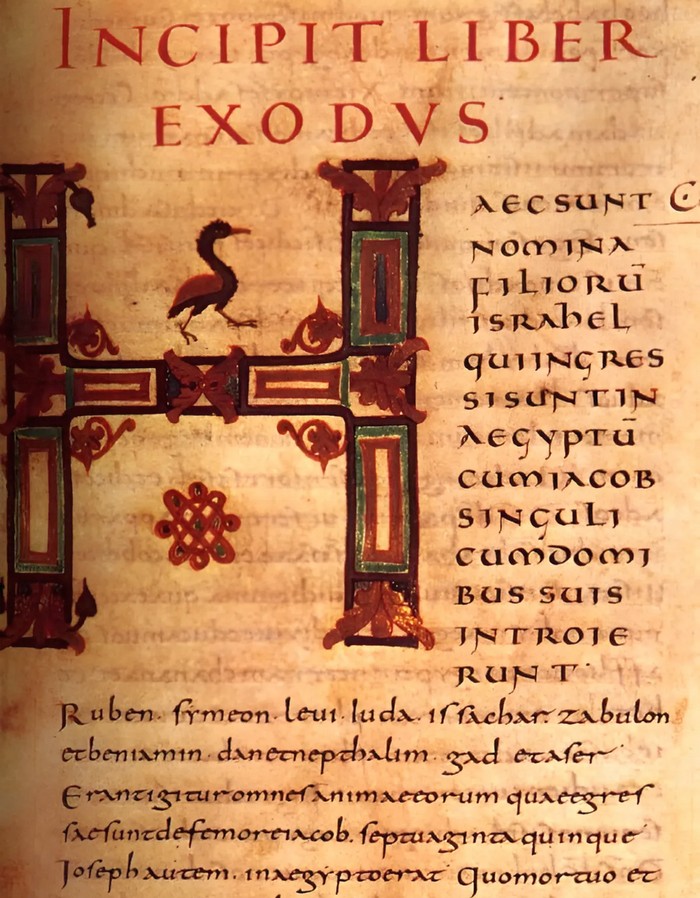 INCIPIT LIBER
EXODVS
HAEC SUNT
NOMINA
FILIORŪ
ISRAHEL
QUI INGRES
SI SUNT IN
AEGYPTŪ
CUM IACOB
SINGULI
CUM DOMI
BUS SUIS
INTROIE
RUNT·
Ruben· symeon· leui· Iuda· issachar· zabulon
et beniamin· dan et nepthalim· gad et aser
Erant igitur omnes animae eorum quae egres
sae sunt de femore iacob· septuaginta quinque
Ioseph autem· in aegypto erat Quo mortuo et